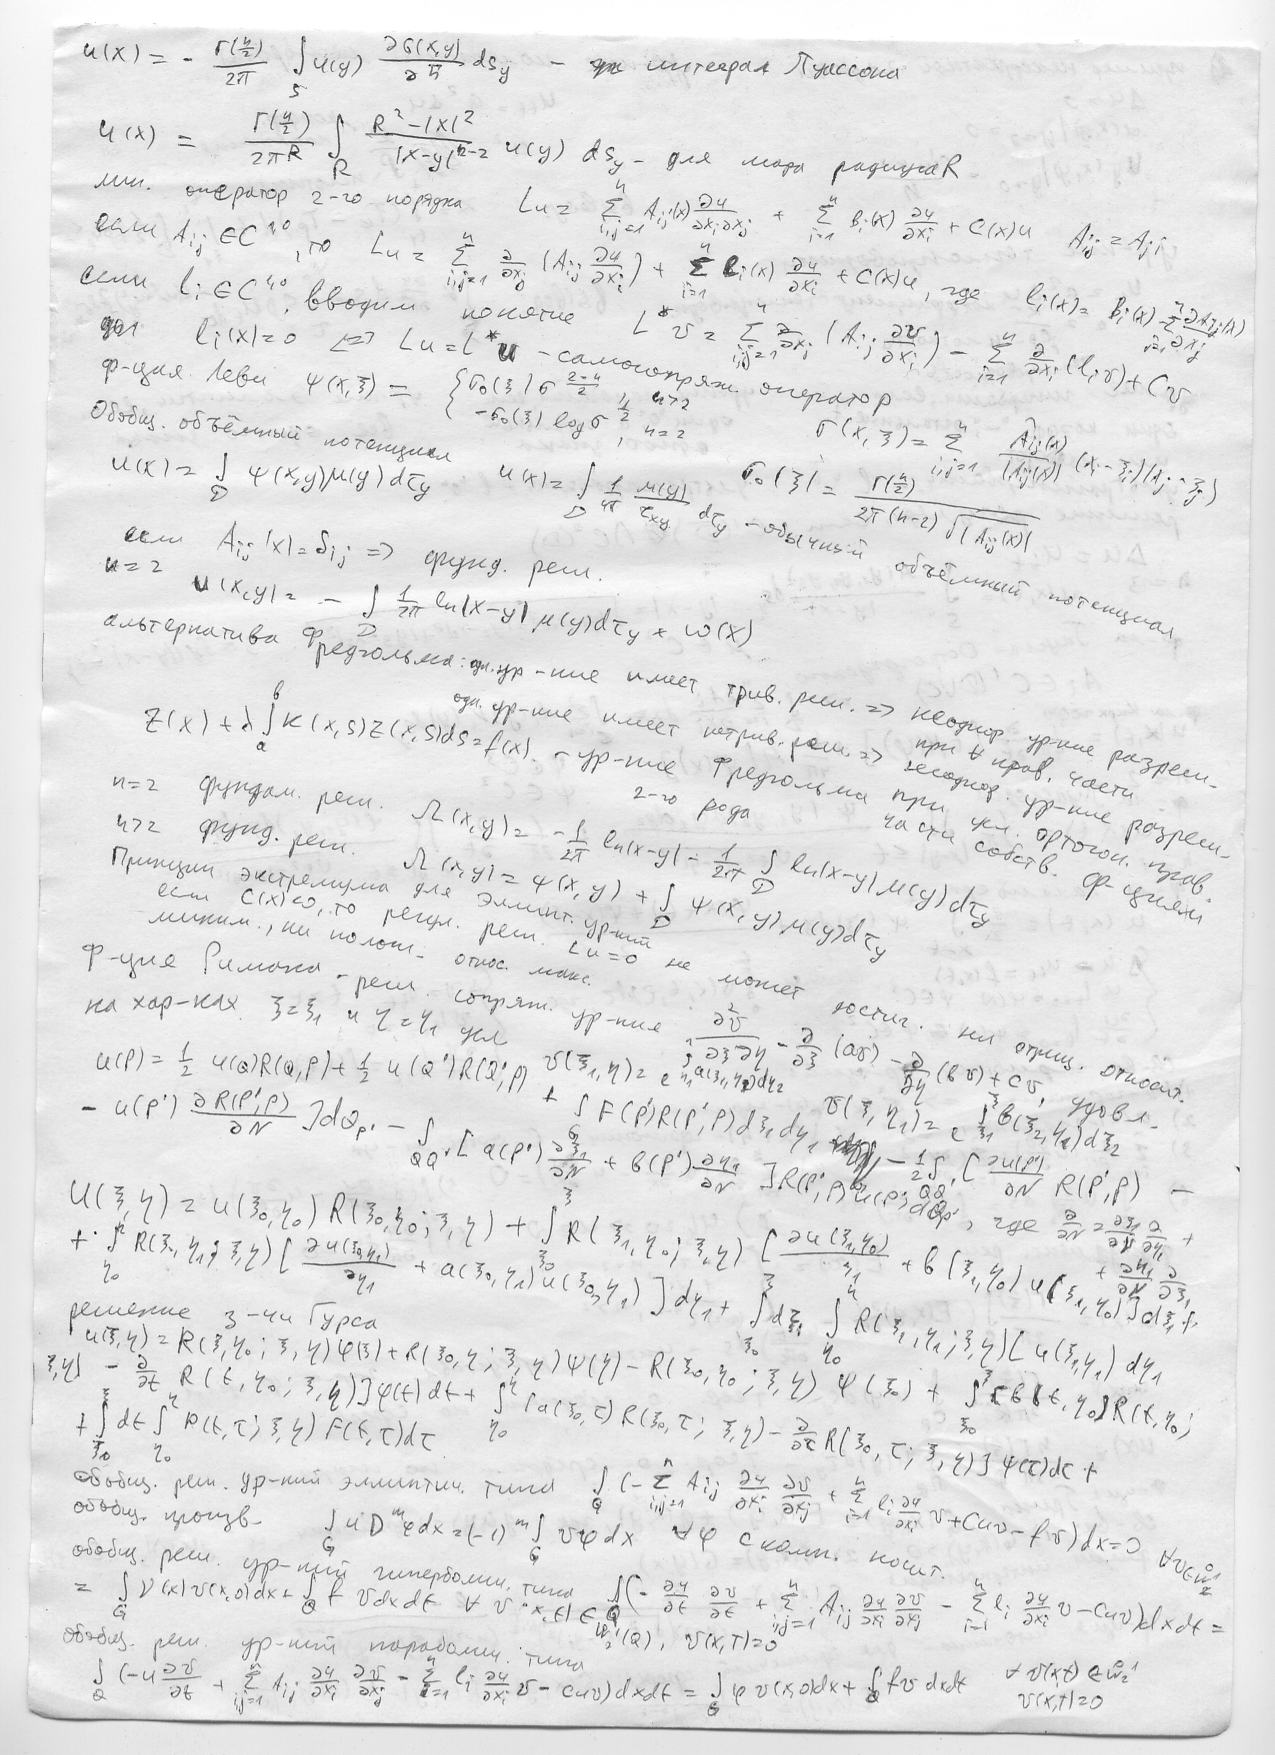 u(x) = - Γ(n/2)/2π ∫_S u(y) ∂G(x,y)/∂n̄ dS_y - интеграл Пуассона
u(x) = Γ(n/2)/2πR ∫_R (R²-|x|²)/|x-y|^{n-2} u(y) dS_y - для шара радиуса R
лин. оператор 2-го порядка Lu = Σ_{i,j=1}^n A_ij(x) ∂u/∂x_i∂x_j + Σ_{i=1}^n B_i(x) ∂u/∂x_i + C(x)u A_ij = A_ji
если A_ij ∈ C^{1,0}, то Lu = Σ_{i,j=1}^n ∂/∂x_j (A_ij ∂u/∂x_i) + Σ_{i=1}^n l_i(x) ∂u/∂x_i + C(x)u, где l_i(x) = B_i(x) - Σ_{j=1}^n ∂A_ij(x)/∂x_j
если l_i ∈ C^{1,0}, вводим понятие L*v = Σ_{i,j=1}^n ∂/∂x_j (A_ij ∂v/∂x_i) - Σ_{i=1}^n ∂/∂x_i (l_i v) + Cv
l_i(x) = 0 ⟺ Lu = L*u - самосопряж. оператор
ф-ция Леви ψ(x,ξ) = { σ_0(ξ) σ^{(2-n)/2}, n>2
-σ_0(ξ) log σ^{1/2}, n=2
σ(x,ξ) = Σ_{i,j=1}^n Â_ij(x)/|A_ij(x)| (x_i-ξ_i)(x_j-ξ_j)
Обобщ. объёмный потенциал σ_0(ξ) = Γ(n/2)/(2π(n-2)√|A_ij(x)|)
u(x) = ∫_D ψ(x,y)μ(y)dτ_y u(x) = ∫_D 1/4π μ(y)/r_xy dτ_y - обычный объёмный потенциал
если A_ij(x) = δ_ij => фунд. реш.
n=2 u(x,y) = - ∫_D 1/2π ln|x-y| μ(y)dτ_y + ω(x)
альтернатива Фредгольма: одн. ур-ние имеет трив. реш. => неоднор. ур-ние разреш.
при ∀ прав. части
одн. ур-ние имеет нетрив. реш. => неоднор. ур-ние разреш.
при усл. ортогон. прав.
части собств. ф-циям
z(x) + λ ∫_a^b K(x,s)z(x,s)ds = f(x). - ур-ние Фредгольма
2-го рода
n=2 фундам. реш. Ω(x,y) = - 1/2π ln|x-y| - 1/2π ∫_D ln|x-y| μ(y)dτ_y
n>2 фунд. реш. Ω(x,y) = ψ(x,y) + ∫_D ψ(x,y)μ(y)dτ_y
Принцип экстремума для эллипт. ур-ний
если C(x)<0, то регул. реш. Lu=0 не может достиг. ни отриц. относит.
миним., ни полож. относ. макс.
Ф-ция Римана - реш. сопряж. ур-ния ∂²v/∂ξ∂η - ∂/∂ξ (av) - ∂/∂η (bv) + cv, удовл.
на хар-ках ξ=ξ_1 и η=η_1 усл v(ξ_1,η) = e^{∫_{η_1}^η a(ξ_1,η_2)dη_2} v(ξ,η_1) = e^{∫_{ξ_1}^ξ b(ξ_2,η_1)dξ_2}
u(P) = 1/2 u(Q)R(Q,P) + 1/2 u(Q')R(Q',P) + ∫_G F(P')R(P',P)dξ_1dη_1 - 1/2 ∫_{QQ'} [∂u(P')/∂N R(P',P) -
- u(P') ∂R(P',P)/∂N ]dQ_{P'} - ∫_{QQ'} [a(P') ∂ξ_1/∂N + b(P') ∂η_1/∂N ]R(P',P)u(P')dQ_{P'}, где ∂/∂N = ∂ξ_1/∂N ∂/∂η_1 +
+ ∂η_1/∂N ∂/∂ξ_1
U(ξ,η) = u(ξ_0,η_0) R(ξ_0,η_0; ξ,η) + ∫_{ξ_0}^ξ R(ξ_1,η_0; ξ,η) [∂u(ξ_1,η_0)/ξ_1 + b(ξ_1,η_0) u(ξ_1,η_0)]dξ_1 +
+ ∫_{η_0}^η R(ξ_0,η_1; ξ,η) [∂u(ξ_0,η_1)/∂η_1 + a(ξ_0,η_1)u(ξ_0,η_1)]dη_1 + ∫_{ξ_0}^ξ dξ_1 ∫_{η_0}^η R(ξ_1,η_1; ξ,η)[u(ξ_1,η_1) dη_1
решение з-чи Гурса
u(ξ,η) = R(ξ,η_0; ξ,η)φ(ξ) + R(ξ_0,η; ξ,η)ψ(η) - R(ξ_0,η_0; ξ,η) φ(ξ_0) + ∫_{ξ_0}^ξ [b(t,η_0)R(t,η_0;
ξ,η) - ∂/∂t R(t,η_0; ξ,η)]φ(t)dt + ∫_{η_0}^η [a(ξ_0,τ)R(ξ_0,τ; ξ,η) - ∂/∂τ R(ξ_0,τ; ξ,η)]ψ(τ)dτ +
+ ∫_{ξ_0}^ξ dt ∫_{η_0}^η R(t,τ; ξ,η) F(t,τ)dτ
обобщ. реш. ур-ний эллиптич. типа ∫_Q (-Σ_{i,j=1}^n A_ij ∂u/∂x_i ∂v/∂x_j + Σ_{i=1}^n l_i ∂u/∂x_i v + Cuv - fv)dx = 0 ∀v∈W̊_2^1
обобщ. произв- ∫_G u D^m φdx = (-1)^m ∫_G vφdx ∀φ с комп. носит.
обобщ. реш. ур-ний гиперболич. типа ∫_Q (- ∂u/∂t ∂v/∂t + Σ_{i,j=1}^n A_ij ∂u/∂x_i ∂v/∂x_j - Σ_{i=1}^n l_i ∂u/∂x_i v - cuv)dxdt =
= ∫_G ψ(x)v(x,0)dx + ∫_Q f v dxdt ∀ v(x,t) ∈ W_2^1(Q), v(x,T)=0
обобщ. реш. ур-ний параболич. типа
∫_Q (-u ∂v/∂t + Σ_{i,j=1}^n A_ij ∂u/∂x_i ∂v/∂x_j - Σ_{i=1}^n l_i ∂u/∂x_i v - cuv)dxdt = ∫_G φ v(x,0)dx + ∫_Q fv dxdt ∀ v(x,t) ∈ W̊_2^1
v(x,T)=0